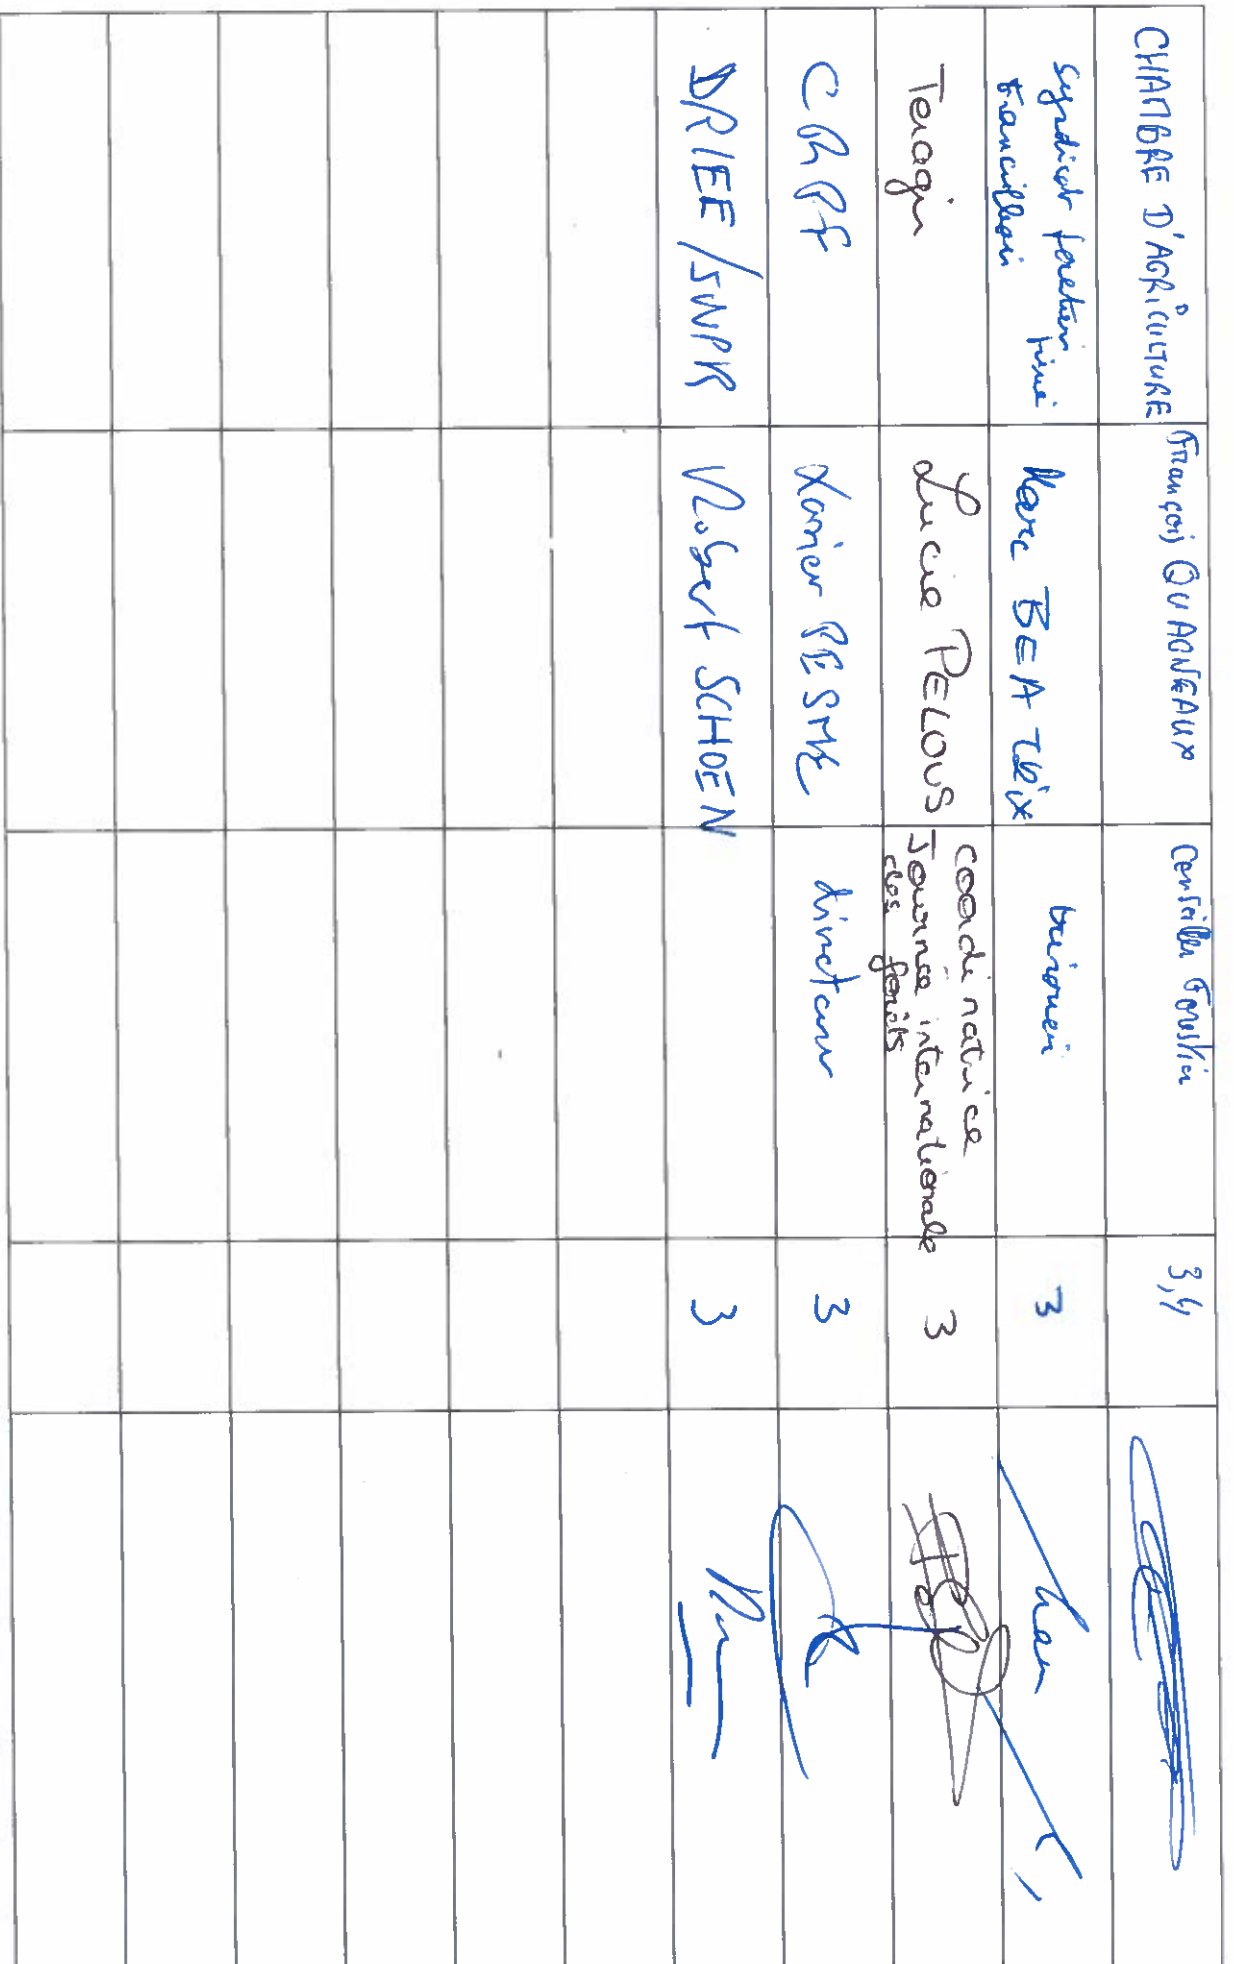 CHAMBRE D'AGRICULTURE François QUAGNEAUX Conseiller Forestier 3,4
Syndicat forestier privé Marc BEATRIX trésorier 3
Franciliens
Teragir Lucie PELOUS coordinatrice 3
Journée internationale
des forêts
CRPF Xavier PESME directeur 3
DRIEE/SNPR Robert SCHOEN 3